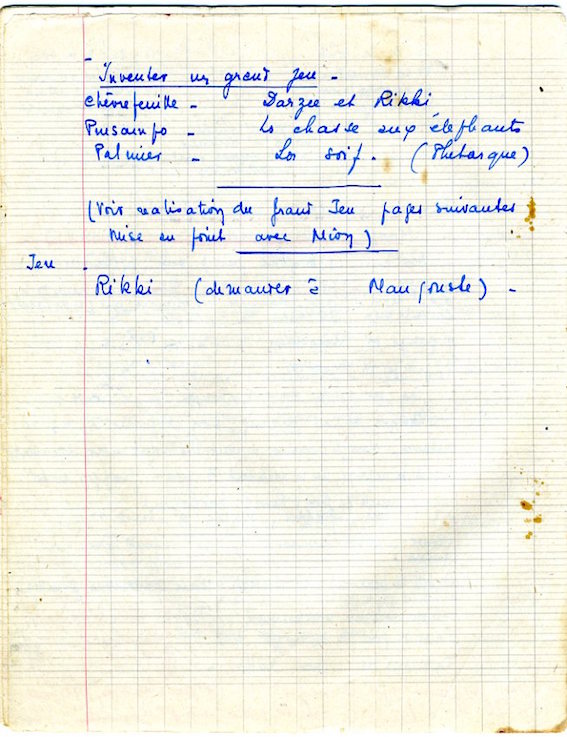 Inventer un grand jeu -
Chèvrefeuille - Darzee et Rikki
- La chasse aux éléphants
Palmier - La soif. (Plutarque)
(Voir réalisation du Grand Jeu pages suivantes
Mise en point avec Mion)
Jeu -
Rikki (demander à Mangouste) -